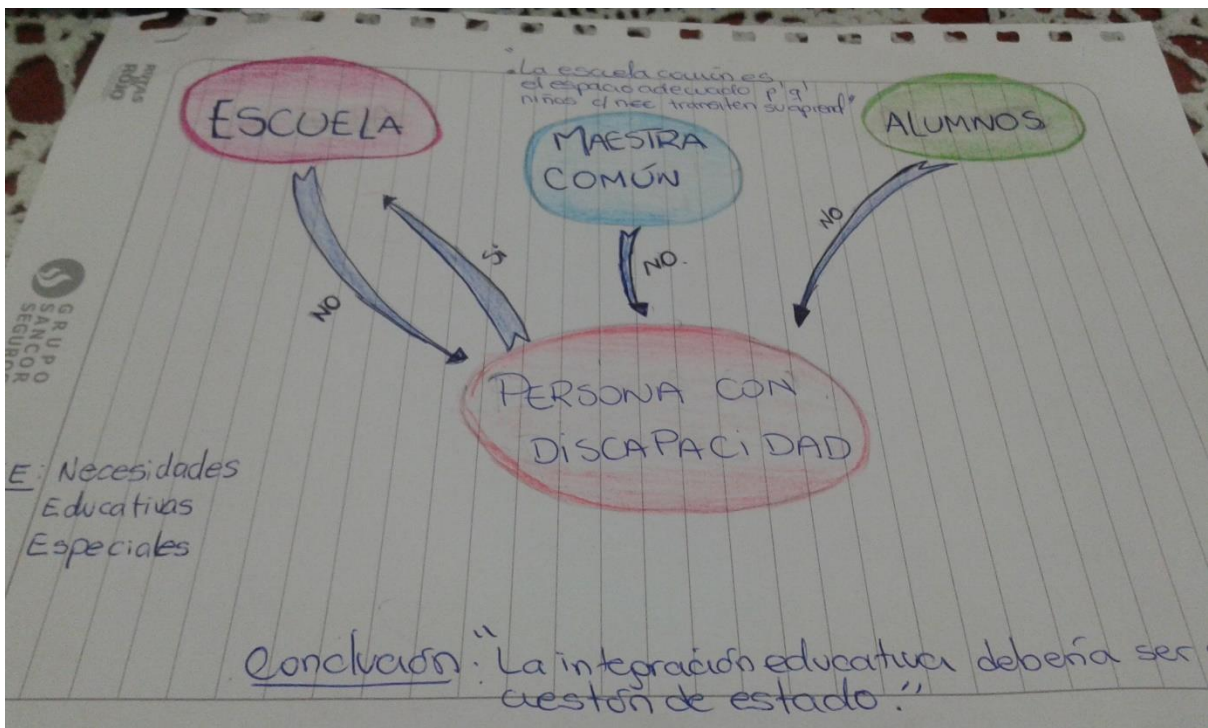 .La escuela común es
el espacio adecuado p' q'
niños c/ nee transiten su aprend"
ESCUELA
MAESTRA
COMÚN
ALUMNOS
NO
SÍ
NO.
NO
PERSONA CON
DISCAPACIDAD
GRUPO
SANCOR
SEGUROS
E: Necesidades
Educativas
Especiales
Conclución: "La integración educativa debería ser
cuestón de estado."